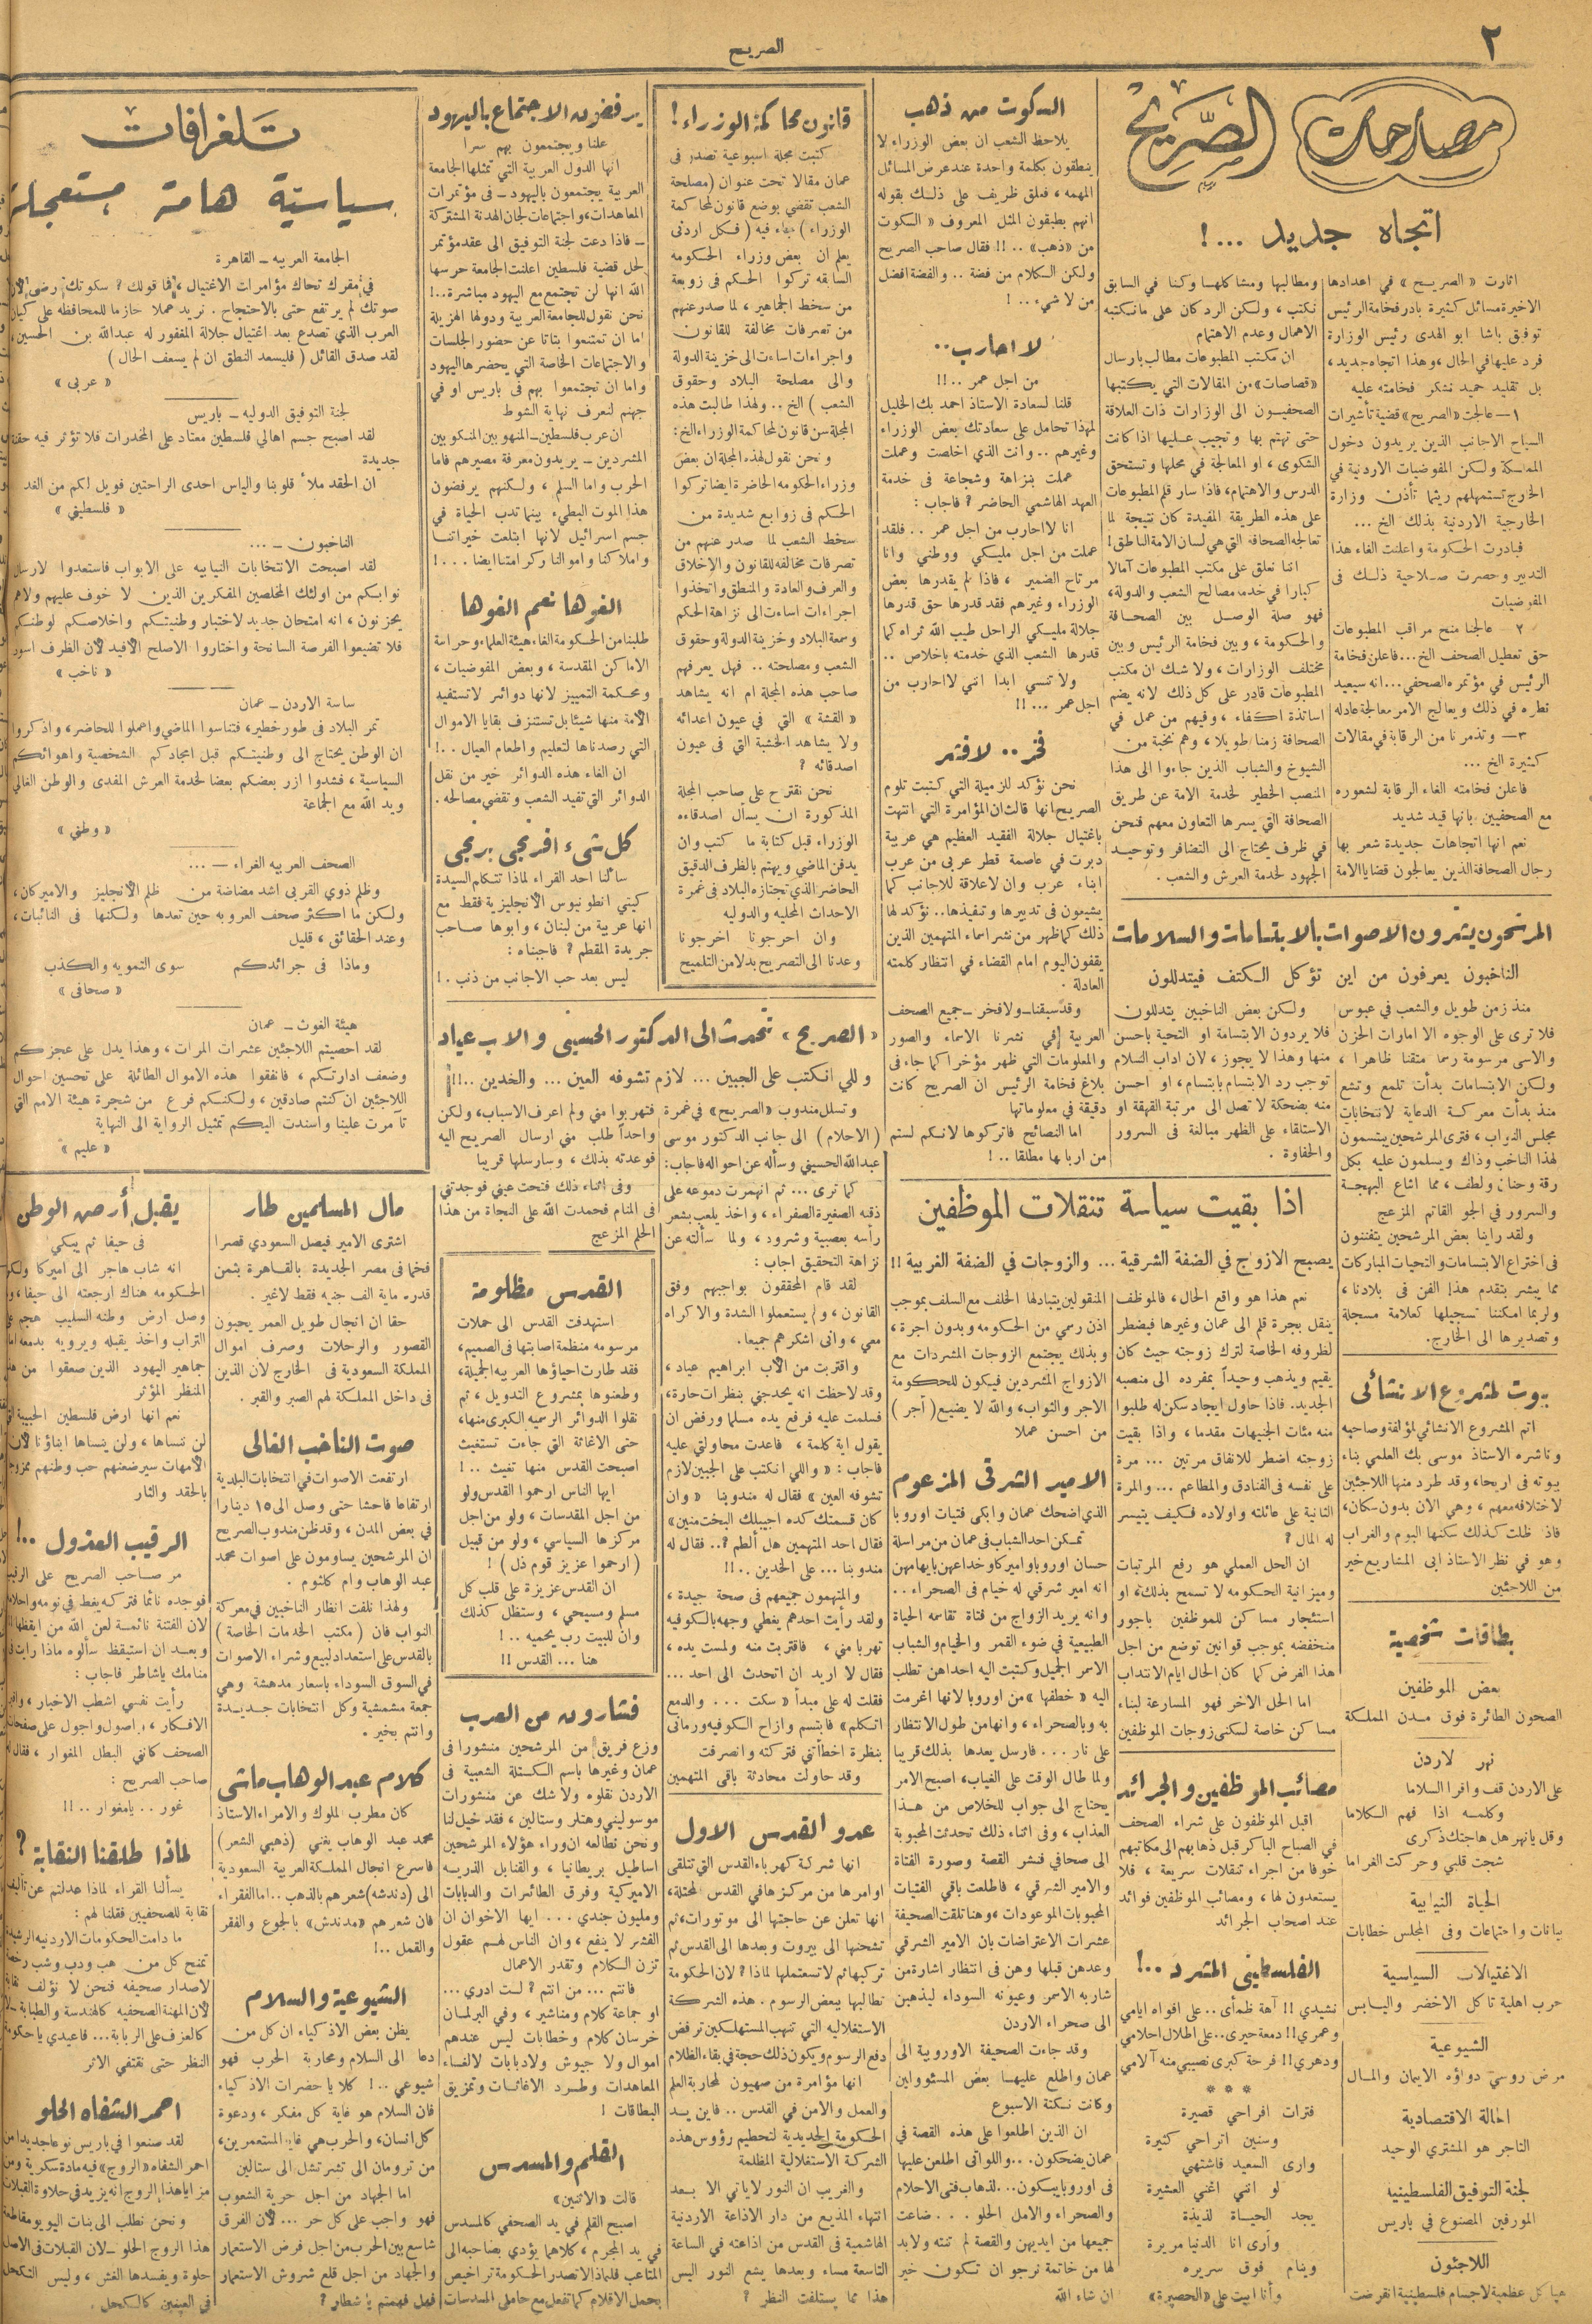 ٢
الصريح
مصارحات الصريح
اتجاه جديد ... !
اثارت «الصريح» في اعدادها
الاخيرة مسائل كثيرة بادر فخامة الرئيس
توفيق باشا ابو الهدى رئيس الوزارة
فرد عليها في الحال، وهذا اتجاه جديد،
بل تقليد حميد نشكر فخامته عليه
١ — عالجت «الصريح» قضية تأشيرات
السياح الاجانب الذين يريدون دخول
المملكة ولكن المفوضيات الاردنية في
الخارج تستمهلهم ريثما تأذن وزارة
الخارجية الاردنية بذلك الخ ...
فبادرت الحكومة واعلنت الغاء هذا
التدبير وحصرت صلاحية ذلك في
المفوضيات
٢ - عالجنا منح مراقب المطبوعات
حق تعطيل الصحف الخ... فاعلن فخامة
الرئيس في مؤتمره الصحفي... انه سيعيد
نظره في ذلك ويعالج الامر معالجة عادله
٣ — وتذمرنا من الرقابة في مقالات
كثيرة الخ ...
فاعلن فخامته الغاء الرقابة لشعوره
مع الصحفيين بانها قيد شديد
نعم انها اتجاهات جديدة شعر بها
رجال الصحافة الذين يعالجون قضايا الامة
ومطالبها ومشاكلها وكنا في السابق
نكتب، ولكن الرد كان على ما نكتبه
الاهمال وعدم الاهتمام
ان مكتب المطبوعات مطالب بارسال
«قصاصات» من المقالات التي يكتبها
الصحفيون الى الوزارات ذات العلاقة
حتى تهتم بها وتجيب عليها اذا كانت
الشكوى، او المعالجة في محلها وتستحق
الدرس والاهتمام، فاذا سار قلم المطبوعات
على هذه الطريقة المفيدة كان نتيجة لما
تعالجه الصحافة التي هي لسان الامة الناطق!
اننا نعلق على مكتب المطبوعات آمالا
كبارا في خدمة مصالح الشعب والدولة،
فهو صلة الوصل بين الصحافة
والحكومة، وبين فخامة الرئيس وبين
مختلف الوزارات، ولا شك ان مكتب
المطبوعات قادر على كل ذلك لانه يضم
اساتذة اكفاء، وفيهم من عمل في
الصحافة زمنا طويلا، وهم نخبة من
الشيوخ والشباب الذين جاءوا الى هذا
المنصب الخطير لخدمة الامة عن طريق
الصحافة التي يسرها التعاون معهم فنحن
في ظرف يحتاج الى التضافر وتوحيد
الجهود لخدمة العرش والشعب.
المرشحون يشترون الاصوات بالابتسامات والسلامات
الناخبون يعرفون من اين تؤكل الكتف فيتدللون
منذ زمن طويل والشعب في عبوس
فلا ترى على الوجوه الا امارات الحزن
والاسى مرسومة رسما متقنا ظاهرا،
ولكن الابتسامات بدأت تلمع وتشع
منذ بدأت معركة الدعاية لانتخابات
مجلس النواب، فترى المرشحين يبتسمون
لهذا الناخب وذاك ويسلمون عليه بكل
رقة وحنان ولطف، مما اشاع البهجة
والسرور في الجو القاتم المزعج
ولقد راينا بعض المرشحين يتفننون
في اختراع الابتسامات والتحيات المباركات
مما يبشر بتقدم هذا الفن في بلادنا،
ولربما امكننا تسجيلها كعلامة مسجلة
وتصديرها الى الخارج.
ولكن بعض الناخبين يتدللون
فلا يردون الابتسامة او التحية باحسن
منها وهذا لا يجوز، لان اداب السلام
توجب رد الابتسام بابتسام، او احسن
منه بضحكة لا تصل الى مرتبة القهقهة او
الاستلقاء على الظهر مبالغة في السرور
والحفاوة.
بيوت المشروع الانشائي
اتم المشروع الانشائي لمؤلفة وصاحبه
وناشره الاستاذ موسى بك العلمي بناء
بيوته في اريحا، وقد طرد منها اللاجئين
لاختلافه معهم، وهي الان بدون سكان،
فاذا ظلت كذلك سكنها البوم والغراب
وهو في نظر الاستاذ ابي المشاريع خير
من اللاجئين
بطاقات شخصية
بعض الموظفين
الصحون الطائرة فوق مدن المملكة
نهر لاردن
على الاردن قف واقرا السلاما
وكلمه اذا فهم الكلاما
وقل يا نهر هل هاجتك ذكرى
شجت قلبي وحركت الغراما
الحياة النيابية
بيانات واجتماعات وفي المجلس خطابات
الاغتيالات السياسية
حرب اهلية تاكل الاخضر واليابس
الشيوعية
مرض روسي دواؤه الايمان والمال
الحالة الاقتصادية
التاجر هو المشتري الوحيد
لجنة التوفيق الفلسطينيه
المورفين المصنوع في باريس
اللاجئون
هياكل عظمية لاجسام فلسطينية انقرضت
السكوت من ذهب
يلاحظ الشعب ان بعض الوزراء لا
ينطقون بكلمة واحدة عند عرض المسائل
المهمه، فعلق ظريف على ذلك بقوله
انهم يطبقون المثل المعروف «السكوت
من «ذهب» .. !! فقال صاحب الصريح
ولكن السكلام من فضة .. والفضة افضل
من لا شيء .. !
لا احارب..
من اجل عمر ..!!
قلنا لسعادة الاستاذ احمد بك الخليل
لمهذا تحامل على سعادتك بعض الوزراء
وغيرهم .. وانت الذي اخلصت وعملت
عملت بنزاهة وشجاعة في خدمة
العهد الهاشمي الحاضر ? فاجاب:
انا لا احارب من اجل عمر .. فلقد
عملت من اجل مليكي ووطني وانا
مرتاح الضمير، فاذا لم يقدرها بعض
الوزراء وغيرهم فقد قدرها حق قدرها
جلالة مليكي الراحل طيب الله ثراه كما
قدرها الشعب الذي خدمته باخلاص ..
ولا تنسي ابدا انني لا احارب من
اجل عمر ... !!
فخر.. لا فخر
نحن نؤكد للزميلة التي كتبت تلوم
الصريح انها قالت ان المؤامرة التي انتهت
باغتيال جلالة الفقيد العظيم هي عربية
دبرت في عاصمة قطر عربي من عرب
ابناء عرب وان لا علاقة للاجانب كما
يشيعون في تدبيرها وتنفيذها .. نؤكد لها
ذلك كما ظهر من نشر اسماء المتهمين الذين
يقفون اليوم امام القضاء في انتظار كلمته
العادلة.
وقد سبقنا - ولا فخر - جميع الصحف
العربية في نشرنا الاسماء والصور
والمعلومات التي ظهر مؤخرا كما جاء في
بلاغ فخامة الرئيس ان الصريح كانت
دقيقة في معلوماتها
اما النصائح فاتركوها لانكم لستم
من اربابها مطلقا .. !
اذا بقيت سياسة تنقلات الموظفين
يصبح الازوج في الضفة الشرقية ... والزوجات في الضفة الغربية !!
نعم هذا هو واقع الحال، فالموظف
ينقل بجرة قلم الى عمان وغيرها فيضطر
لظروفه الخاصة لترك زوجته حيث كان
يقيم ويذهب وحيداً بمفرده الى منصبه
الجديد. فاذا حاول ايجاد سكن له طلبوا
منه مئات الجنيهات مقدما، واذا بقيت
زوجته اضطر للانفاق مرتين ... مرة
على نفسه في الفنادق والمطاعم ... والمرة
الثانية على عائلته واولاده فكيف يتيسر
له المال ?
ان الحل العملي هو رفع المرتبات
وميزانية الحكومه لا تسمح بذلك، او
استئجار مساكن للموظفين باجور
منخفضه بموجب قوانين توضع من اجل
هذا الغرض كما كان الحال ايام الانتداب
اما الحل الاخر فهو المسارعة لبناء
مساكن خاصة لسكنى زوجات الموظفين
المنقولين يتبادلها الخلف مع السلف بموجب
اذن رسمي من الحكومه وبدون اجرة،
وبذلك يجتمع الزوجات المشردات مع
الازواج المشردين فيكون للحكومة
الاجر والثواب، والله لا يضيع (آجر)
من احسن عملا
مصائب الموظفين والجرائد
اقبل الموظفون على شراء الصحف
في الصباح الباكر قبل ذهابهم الى مكاتبهم
خوفا من اجراء تنقلات سريعة، فلا
يستعدون لها، ومصائب الموظفين فوائد
عند اصحاب الجرائد
الفلسطيني المشرد ..!
نشيدي !! آهة ظمأى .. على افواه ايامي
وعمري !! دمعة حيرى .. على اطلال احلامي
ودهري !! فرحة كبرى نصيبي منه آلامي
* * *
فترات افراحي قصيرة
وسنين اتراحي كثيرة
وارى السعيد فاشتهي
لو انني اغني العشيرة
يجد الحياة لذيذة
وأرى انا الدنيا مريرة
وينام فوق سريره
وأنا ابيت على «الحصيرة»
الامير الشرقي المزعوم
الذي اضحك عمان وابكى فتيات اوروبا
تمكن احد الشباب في عمان من مراسلة
حسان اوروبا واميركا وخداعهن بايهامهن
انه امير شرقي له خيام في الصحراء ..
وانه يريد الزواج من فتاة تقاسمه الحياة
الطبيعية في ضوء القمر والخيام والشباب
الاسمر الجميل وكتبت اليه احداهن تطلب
اليه «خطفها» من اوروبا لانها اغرمت
به وبالصحراء، وانها من طول الانتظار
على نار ... فارسل يعدها بذلك قريبا
ولما طال الوقت على الغياب، اصبح الامر
يحتاج الى جواب للخلاص من هذا
العذاب، وفي اثناء ذلك تحدثت المحبوبة
الى صحافي فنشر القصة وصورة الفتاة
والامير الشرقي، فاطلعت باقي الفتيات
المحبوبات الموعودات، وهنا تلقت الصحيفة
عشرات الاعتراضات بان الامير الشرقي
وعدهن قبلها وهن في انتظار اشارة من
شاربه الاسمر وعيونه السوداء ليذهبن
الى صحراء الاردن
وقد جاءت الصحيفة الاوروبية الى
عمان واطلع عليها بعض المسؤولين
وكانت نكتة الاسبوع
ان الذين اطلعوا على هذه القصة في
عمان يضحكون... واللواتي اطلعن عليها
في اوروبا يبكون.. لذهاب فتى الاحلام
والصحراء والامل الحلو ... ضاعت
جميعها من ايديهن والقصة لم تنته ولابد
لها من خاتمة نرجو ان تكون خير
ان شاء الله
قانون محاكمة الوزراء !
كتبت مجلة اسبوعية تصدر في
عمان مقالا تحت عنوان (مصلحة
الشعب تقضي بوضع قانون لمحاكمة
الوزراء) جاء فيه (فكل اردني
يعلم ان بعض وزراء الحكومه
السابقه تركوا الحكم في زوبعة
من سخط الجماهير، لما صدر عنهم
من تصرفات مخالفة للقانون
واجراءات اساءت الى خزينة الدولة
والى مصلحة البلاد وحقوق
الشعب) الخ .. ولهذا طالبت هذه
المجلة سن قانون لمحاكمة الوزراء الخ:
ونحن نقول لهذه المجلة ان بعض
وزراء الحكومه الحاضرة ايضا تركوا
الحكم في زوابع شديدة من
سخط الشعب لما صدر عنهم من
تصرفات مخالفه للقانون والاخلاق
والعرف والعادة والمنطق واتخذوا
اجراءات اساءت الى نزاهة الحكم
وسمعة البلاد وخزينة الدولة وحقوق
الشعب ومصلحته .. فهل يعرفهم
صاحب هذه المجلة ام انه يشاهد
«القشة» التي في عيون اعدائه
ولا يشاهد الخشبة التي في عيون
اصدقائه ?
نحن نقترح على صاحب المجلة
المذكورة ان يسأل اصدقاءه
الوزراء قبل كتابة ما كتب وان
يدفن الماضي ويهتم بالظرف الدقيق
الحاضر الذي تجتازه البلاد في غمرة
الاحداث المحليه والدوليه
وان احرجونا اخرجونا
وعدنا الى التصريح بدلا من التلميح
يرفضون الاجتماع باليهود
علنا ويجتمعون بهم سرا
انها الدول العربية التي تمثلها الجامعة
العربية يجتمعون باليهود — في مؤتمرات
المعاهدات، واجتماعات لجان الهدنة المشتركة
— فاذا دعت لجنة التوفيق الى عقد مؤتمر
لحل قضية فلسطين اعلنت الجامعة حرسها
الله انها لن تجتمع مع اليهود مباشرة..!
نحن نقول للجامعة العربية ودولها الهزيلة
اما ان تمتنعوا بتاتا عن حضور الجلسات
والاجتماعات الخاصة التي يحضرها اليهود
واما ان تجتمعوا بهم في باريس او في
جهنم لنعرف نهاية الشوط
ان عرب فلسطين — المنهوبين المنكوبين
المشردين — يريدون معرفة مصيرهم فاما
الحرب واما السلم، ولكنهم يرفضون
هذا الموت البطيء بينما تدب الحياة في
جسم اسرائيل لانها ابتلعت خيراتنا
واملاكنا واموالنا وكرامتنا ايضا ...!
الغوها نعم الغوها
طلبنا من الحكومة الغاء، هيئة العلماء وحراسة
الاماكن المقدسة، وبعض المفوضيات،
ومحكمة التمييز لانها دوائر لا تستفيد
الأمة منها شيئا بل تستنزف بقايا الاموال
التي رصدناها لتعليم واطعام العيال ..!
ان الغاء هذه الدوائر خير من نقل
الدوائر التي تفيد الشعب وتقضي مصالحه.
كل شيء افرنجي برنجي
سألنا احد القراء لماذا تتكلم السيدة
كيتي انطونيوس الأنجليزية فقط مع
انها عربية من لبنان، وابوها صاحب
جريدة المقطم ? فاجبناه:
ليس بعد حب الاجانب من ذنب .!
«الصريح» تتحدث الى الدكتور الحسيني والاب عياد
وللي انكتب على الجبين ... لازم تشوفه العين ... والخدين ..!!
وتسلل مندوب «الصريح» في غمرة
(الاحلام) الى جانب الدكتور موسى
عبدالله الحسيني وسأله عن احواله فاجاب:
كما ترى ... ثم انهمرت دموعه على
ذقنه الصغيرة الصفراء، واخذ يلعب بشعر
رأسه بعصبية وشرود، ولما سألته عن
نزاهة التحقيق اجاب:
لقد قام المحققون بواجبهم وفق
القانون، ولم يستعملوا الشدة والاكراه
معي، واني اشكرهم جميعا.
واقتربت من الأب ابراهيم عياد،
وقد لاحظت انه يحدجني بنظرات حارة،
فسلمت عليه فرفع يده مسلما ورفض ان
يقول اية كلمة، فاعدت محاولتي عليه
فاجاب: «واللي انكتب على الجبين لازم
تشوفه العين» فقال له مندوبنا «وان
كان قسمتك كده اجيبلك البخت منين»
فقال احد المتهمين هل أُلطم ?.. فقال له
مندوبنا ... على الخدين ..!!
والمتهمون جميعهم في صحة جيدة،
ولقد رأيت احدهم يغطي وجهه بالكوفيه
تهربا مني، فاقتربت منه ولمست يده،
فقال لا اريد ان اتحدث الى احد ...
فقلت له على مبدأ «سكت ... والدمع
اتكلم» فابتسم وازاح الكوفيه ورماني
بنظرة اخطأتني فتركته وانصرفت
وقد حاولت محادثة باقي المتهمين
فتهربوا مني ولم اعرف الاسباب، ولكن
واحداً طلب مني ارسال الصريح اليه
فوعدته بذلك، وسارسلها قريبا
وفي اثناء ذلك فتحت عيني فوجدتني
في المنام فحمدت الله على النجاة من هذا
الحلم المزعج
القدس مظلومة
استهدفت القدس الى حملات
مرسومه منظمة اصابتها في الصميم،
فقد طارت احياؤها العربيه الجميلة،
وطعنوها بمشروع التدويل، ثم
نقلوا الدوائر الرسميه الكبرى منها،
حتى الاغاثة التي جاءت تستغيث
اصبحت القدس منها تغيث ..!
ايها الناس ارحموا القدس ولو
من اجل المقدسات، ولو من اجل
مركزها السياسي، ولو من قبيل
(ارحموا عزيز قوم ذل) !
ان القدس عزيزة على قلب كل
مسلم ومسيحي، وستظل كذلك
وان للبيت رب يحميه ..!
هنا ... القدس !!
عدو القدس الاول
انها شركة كهرباء القدس التي تتلقى
اوامرها من مركزها في القدس المحتلة،
انها تعلن عن حاجتها الى موتورات، ثم
تشحنها الى بيروت وبعدها الى القدس ثم
تركبها ثم لا تستعملها لماذا ? لان الحكومة
تطالبها ببعض الرسوم. هذه الشركة
الاستغلاليه التي تنهب المستهلكين ترفض
دفع الرسوم ويكون ذلك حجة في بقاء الظلام
انها مؤامرة من صهيون لمحاربة العلم
والعمل والامن في القدس .. فاين يد
الحكومة الحديدية لتحطيم رؤوس هذه
الشركة الاستغلالية المظلمة
والغريب ان النور لا ياتي الا بعد
انتهاء المذيع من دار الاذاعة الاردنية
الهاشمية في القدس من اذاعته في الساعة
التاسعة مساء وبعدها يشع النور اليس
هذا مما يستلفت النظر ?
فشارون من العرب
وزع فريق من المرشحين منشورا في
عمان وغيرها باسم الكتلة الشعبية في
الاردن نقلوه ولا شك عن منشورات
موسوليني وهتلر وستالين، فقد خيل لنا
ونحن نطالعه ان وراء هؤلاء المرشحين
اساطيل بريطانيا، والقنابل الذريه
الاميركية وفرق الطائرات والدبابات
ومليون جندي ... ايها الاخوان ان
الفشر لا ينفع، وان الناس لهم عقول
تزن السكلام وتقدر الاعمال
فانتم ... من انتم ? لست ادري ...
او جماعة كلام ومناشير، وفي البرلمان
خرسان كلام وخطابات ليس عندهم
اموال ولا جيوش ولا دبابات لالغاء
المعاهدات وطرد الاغاثات وتمزيق
البطاقات !
القلم والمسدس
قالت «الاثنين»
اصبح القلم في يد الصحفي كالمسدس
في يد المجرم، كلاهما يؤدي بصاحبه الى
المتاعب فلماذا لا تصدر الحكومة تراخيص
بحمل الاقلام كما تفعل مع حاملي المسدسات
تلغرافات
سياسية هامة مستعجلة
الجامعة العربيه — القاهرة
في مقرك تحاك مؤامرات الاغتيال، فما قولك ? سكوتك رضى لأن
صوتك لم يرتفع حتى بالاحتجاج. نريد عملا حازما للمحافظه على كيان
العرب الذي تصدع بعد اغتيال جلالة المغفور له عبدالله بن الحسين،
لقد صدق القائل (فليسعد النطق ان لم يسعف الحال)
«عربي»
لجنة التوفيق الدوليه — باريس
لقد اصبح جسم اهالي فلسطين معتاد على المخدرات فلا تؤثر فيه حقنة
جديدة
ان الحقد ملأ قلوبنا والياس احدى الراحتين فويل لكم من الغد
«فلسطيني»
الناخبون — ...
لقد اصبحت الانتخابات النيابيه على الابواب فاستعدوا لارسال
نوابكم من اولئك المخلصين المفكرين الذين لا خوف عليهم ولا هم
يحزنون، انه امتحان جديد لاختبار وطنيتكم واخلاصكم لوطنكم
فلا تضيعوا الفرصة السانحة واختاروا الاصلح الأفيد لأن الظرف اسود
«ناخب»
ساسة الاردن — عمان
تمر البلاد في طور خطير، فتناسوا الماضي واعملوا للحاضر، واذكروا
ان الوطن يحتاج الى وطنيتكم قبل امجادكم الشخصية واهوائكم
السياسية، فشدوا ازر بعضكم بعضا لخدمة العرش المفدى والوطن الغالي
ويد الله مع الجماعة
«وطني»
الصحف العربيه الغراء — ...
وظلم ذوي القربى اشد مضاضة من ظلم الأنجليز والاميركان،
ولكن ما اكثر صحف العروبه حين تعدها ولكنها في النائبات،
وعند الحقائق، قليل
وماذا في جرائدكم سوى التمويه والكذب
«صحافي»
هيئة الغوث — عمان
لقد احصيتم اللاجئين عشرات المرات، وهذا يدل على عجزكم
وضعف ادارتكم، فانفقوا هذه الاموال الطائلة على تحسين احوال
اللاجئين ان كنتم صادقين، ولكنكم فرع من شجرة هيئة الامم التي
تآمرت علينا واسندت اليكم تمثيل الرواية الى النهاية
«عليم»
مال المسلمين طار
اشترى الامير فيصل السعودي قصرا
فخما في مصر الجديدة بالقاهرة بثمن
قدره ماية الف جنيه فقط لاغير.
حقا ان انجال طويل العمر يحبون
القصور والرحلات وصرف اموال
المملكة السعودية في الخارج لأن الذين
في داخل المملكة لهم الصبر والقبر.
صوت الناخب الغالي
ارتفعت الاصوات في انتخابات البلدية
ارتفاعا فاحشا حتى وصل الى ١٥ دينارا
في بعض المدن، وقد ظن مندوب الصريح
ان المرشحين يساومون على اصوات محمد
عبد الوهاب وام كلثوم.
ولهذا نلفت انظار الناخبين في معركة
النواب فان (مكتب الخدمات الخاصة)
بالقدس على استعداد لبيع وشراء الاصوات
في السوق السوداء باسعار مدهشة وهي
جمعة مشمشية وكل انتخابات جديدة
وانتم بخير.
كلام عبد الوهاب ماشي
كان مطرب الملوك والامراء الاستاذ
محمد عبد الوهاب يغني (ذهبي الشعر)
فاسرع انجال المملكة العربية السعودية
الى (دندشه) شعرهم بالذهب .. اما الفقراء
فان شعرهم «مدندش» بالجوع والفقر
والقمل ..!
الشيوعية والسلام
يظن بعض الاذكياء ان كل من
دعا الى السلام ومحاربة الحرب فهو
شيوعي ..! كلا يا حضرات الاذكياء
فان السلام هو غاية كل مفكر، ودعوة
كل انسان، والحرب هي غاية المستعمرين،
من ترومان الى تشرتشل الى ستالين
اما الجهاد من اجل حرية الشعوب
فهو واجب على كل حر ... لأن الفرق
شاسع بين الحرب من اجل فرض الاستعمار
والجهاد من اجل قلع شروش الاستعمار
فهل فهمتم يا شطار ?
يقبل أرض الوطن
في حيفا ثم يبكي
انه شاب هاجر الى اميركا ولكن
الحكومه هناك ارجعته الى حيفا،
وصل ارض وطنه السليب هجم
التراب واخذ يقبله ويرويه بدمعه امام
جماهير اليهود الذين صعقوا من هذا
المنظر المؤثر
نعم انها ارض فلسطين الحبيبة
لن ننساها، ولن ينساها ابناؤنا لأن
الأمهات سيرضعنهم حب وطنهم ممزوجا
بالحقد والثار
الرقيب العذول ..!
مر صاحب الصريح على الرقيب
فوجده نائما فتركه يغط في نومه واحلامه
لان الفتنة نائمة لعن الله من ايقظها
وبعد ان استيقظ سألوه ماذا رايت في
منامك يا شاطر فاجاب:
رأيت نفسي اشطب الاخبار،
الافكار، واصول واجول على صفحات
الصحف كانني البطل المغوار، فقال له
صاحب الصريح:
غور .. يا مغوار ..!!
لماذا طلقنا النقابة ?
يسألنا القراء لماذا عدلتم عن تأليف
نقابة للصحفيين فقلنا لهم:
ما دامت الحكومات الاردنيه الرشيدة
تمنح كل من هب ودب وشب رخصة
لاصدار صحيفه فنحن لا نؤلف نقابة
لأن المهنة الصحفيه كالهندسة والطبابة — لا
كالعزف على الربابة... فاعيدي يا حكومة
النظر حتى نقتفي الاثر
احمر الشفاه الحلو
لقد صنعوا في باريس نوعا جديدا من
احمر الشفاه «الروج» فيه مادة سكرية ومن
مزايا هذا الروج انه يزيد في حلاوة القبلات
ونحن نطلب الى بنات اليويو مقاطعة
هذا الروج الحلو — لان القبلات في الاصل
حلوة ويفسدها الغش، وليس التكحل
في العينين كالكحل.